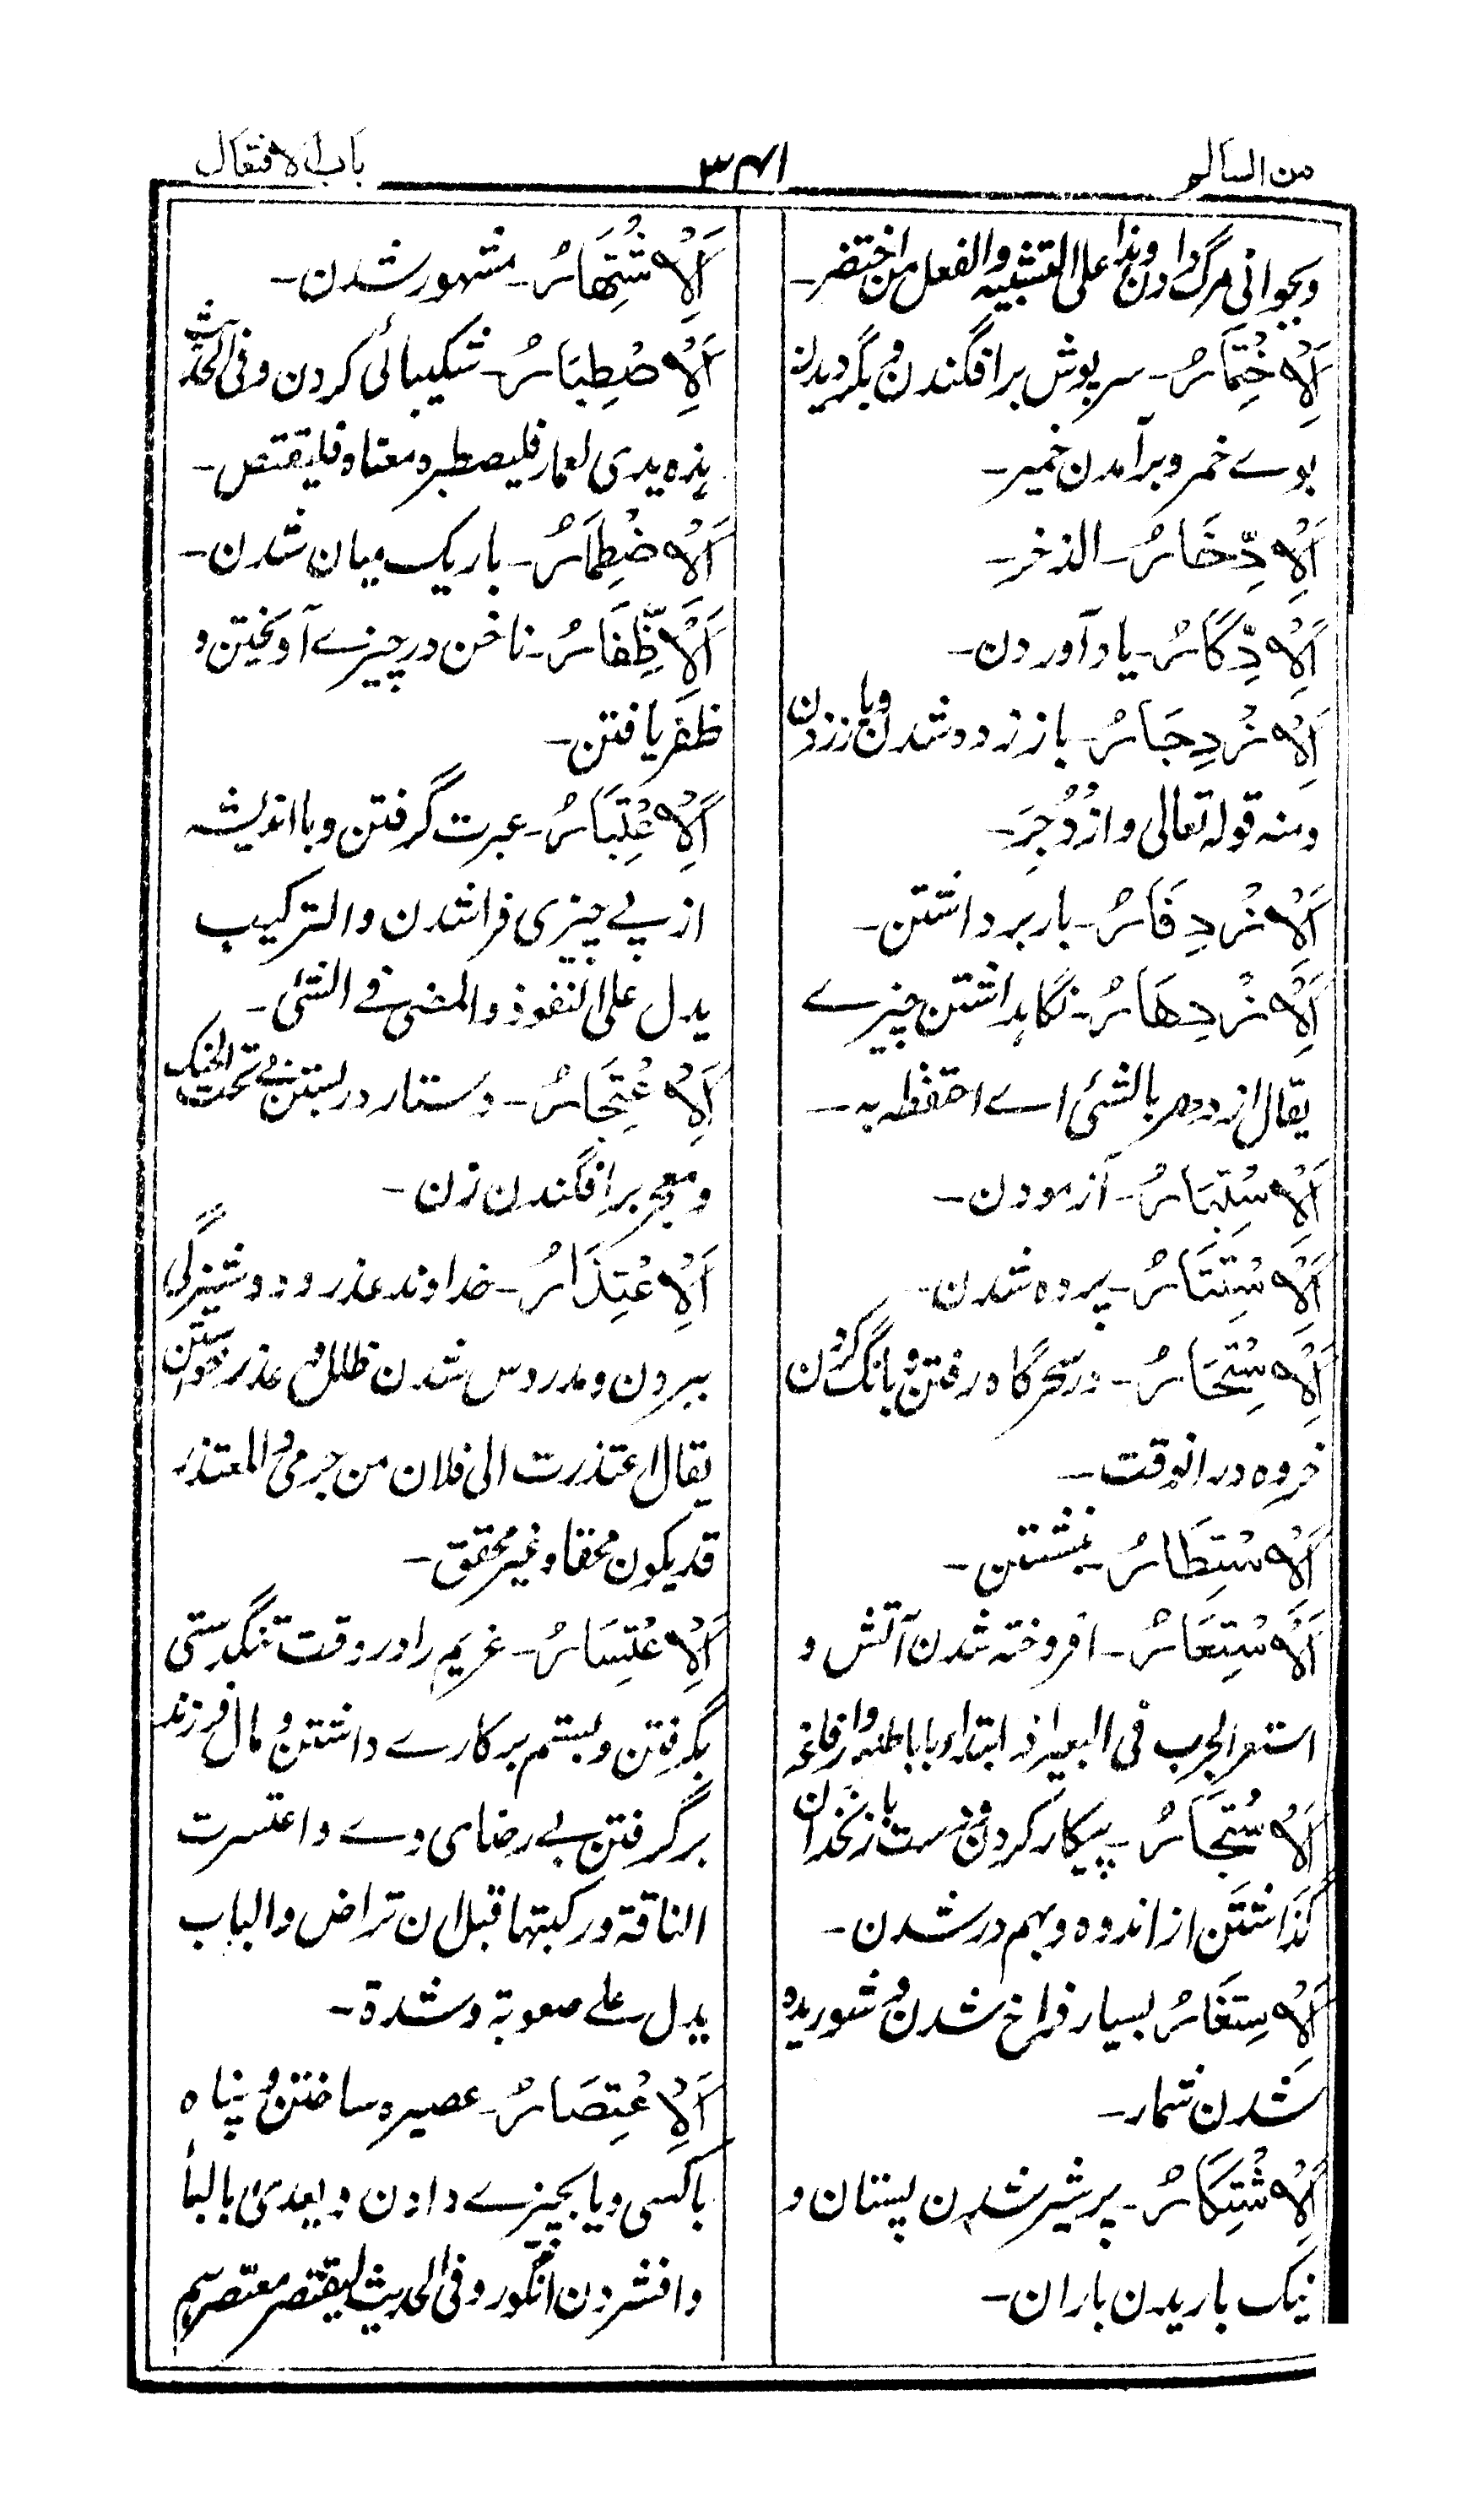 من السالم
۳۴۱
باب الافتعال
وبجوانی مرگ دادن وہذا علی التشبیہ والفعل من اختضر۔
اَلْاِخْتِمَارُ۔ سر پوش برافگندن و بگردیدن
بوے خمر و برآمدن خمیر۔
اَلْاِدِّخَارُ۔ الذخر۔
اَلْاِدِّكَارُ۔ یاد آوردن۔
اَلْاِزْدِجَارُ۔ باز زدہ شدن و باز زدن
ومنہ قولہ تعالی وازْدُجِرَ۔
اَلْاِزْدِفَارُ۔ بار برداشتن۔
اَلْاِزْدِهَارُ۔ نگاہداشتن چیزے
یقال ازدهر بالشئ اے احتفظ بہ۔
اَلْاِسْتِبَارُ۔ آزمودن۔
اَلْاِسْتِتَارُ۔ پردہ شدن۔
اَلْاِسْتِحَارُ۔ در سحرگاہ رفتن و بانگ کردن
خروہ درانوقت۔
اَلْاِسْتِطَارُ۔ نبشتن۔
اَلْاِسْتِعَارُ۔ افروختہ شدن آتش و
استعر الجرب فی البعیر اذ ابتداء بآباطہ وارفاغہ
اَلْاِشْتِجَارُ۔ پیکار کردن و دست بازنخدان
گذاشتن از اندوہ و بہم در شدن۔
اَلْاِشْتِغَارُ بسیار فراخ شدن و شوریدہ
شدن شمار۔
اَلْاِشْتِكَارُ۔ پر شیر شدن پستان و
نیک باریدن باران۔
اَلْاِشْتِهَارُ۔ مشہور شدن۔
اَلْاِصْطِبَارُ۔ شکیبائی کردن وفی الحدیث
ہذہ یدی لعمار فلیصطبر و معناہ فلیقتص۔
اَلْاِضْطِمَارُ۔ باریک میان شدن۔
اَلْاِظِّفَارُ۔ ناخن در چیزے آویختن و
ظفر یافتن۔
اَلْاِعْتِبَارُ۔ عبرت گرفتن و با اندیشہ
از پے چیزی فراشدن والترکیب
یدل علی النفوذ والمضی فے الشئ۔
اَلْاِعْتِجَارُ۔ دستار در بستن بے تحت الحنک
و معجر برافگندن زن۔
اَلْاِعْتِذَارُ۔ خداوند عذر و دوشیزگی
ببردن و مدروس شدن طلل و عذر خواستن
یقال اعتذرت الی فلان من جرمی والمعتذر
قد یکون محقا وغیر محق۔
اَلْاِعْتِسَارُ۔ غریم را در وقت تنگدستی
بگرفتن و بستم بر کارے داشتن و مال فرزند
برگرفتن بے رضای وے واعتسرت
الناقۃ ورکبتہا قبل ان تراض والباب
یدل علے صعوبۃ وشدۃ۔
اَلْاِعْتِصَارُ۔ عصیرہ ساختن و پناہ
باکسی ویا بچیزے دادن ویعدی بالبا
وافشردن انگور وفی الحدیث لیقتصر معتصرہم